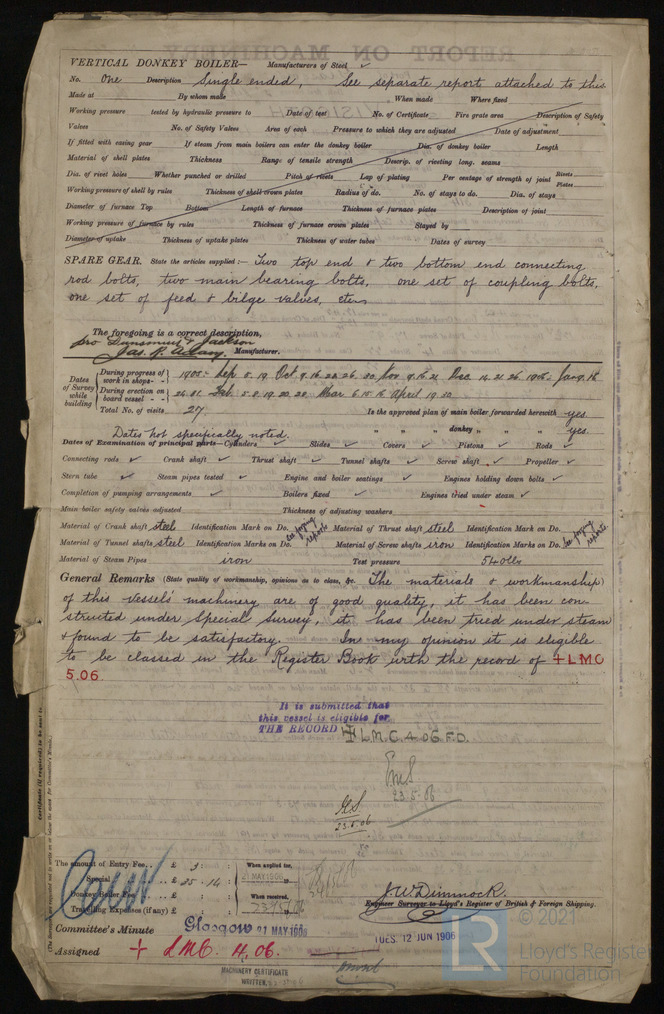 VERTICAL DONKEY BOILER— Manufacturers of Steel ✓
No. One Description Single ended, See separate report attached to this
Made at By whom made When made Where fixed
Working pressure tested by hydraulic pressure to Date of test No. of Certificate Fire grate area Description of Safety
Valves No. of Safety Valves Area of each Pressure to which they are adjusted Date of adjustment
If fitted with easing gear If steam from main boilers can enter the donkey boiler Dia. of donkey boiler Length
Material of shell plates Thickness Range of tensile strength Descrip. of riveting long. seams
Dia. of rivet holes Whether punched or drilled Pitch of rivets Lap of plating Per centage of strength of joint Rivets Plates
Working pressure of shell by rules Thickness of shell crown plates Radius of do. No. of stays to do. Dia. of stays
Diameter of furnace Top Bottom Length of furnace Thickness of furnace plates Description of joint
Working pressure of furnace by rules Thickness of furnace crown plates Stayed by
Diameter of uptake Thickness of uptake plates Thickness of water tubes Dates of survey
SPARE GEAR. State the articles supplied:— Two top end & two bottom end connecting
rod bolts, two main bearing bolts, one set of coupling bolts,
one set of feed & bilge valves, etc
The foregoing is a correct description,
pro Dunsmuir & Jackson
Manufacturer.
Dates of Survey while building
During progress of work in shops - - 1905:- Sep 5. 19. Oct 9. 16. 23. 26. 30. Nov 9. 16. 21 Dec 14. 21. 26 1906:- Jan 9. 18
During erection on board vessel - - 26. 31. Feb. 5. 8. 19. 20. 28. Mar 6. 15. 16 April 19. 30
Total No. of visits 27. Is the approved plan of main boiler forwarded herewith yes
" " " donkey " " " yes.
Dates not specifically noted.
Dates of Examination of principal parts—Cylinders ✓ Slides ✓ Covers ✓ Pistons ✓ Rods ✓
Connecting rods ✓ Crank shaft ✓ Thrust shaft ✓ Tunnel shafts ✓ Screw shaft ✓ Propeller ✓
Stern tube ✓ Steam pipes tested ✓ Engine and boiler seatings ✓ Engines holding down bolts ✓
Completion of pumping arrangements ✓ Boilers fixed ✓ Engines tried under steam ✓
Main boiler safety valves adjusted Thickness of adjusting washers
Material of Crank shaft steel Identification Mark on Do. See forging reports Material of Thrust shaft steel Identification Mark on Do.
Material of Tunnel shafts steel Identification Marks on Do. Material of Screw shafts iron Identification Marks on Do. See forging reports.
Material of Steam Pipes iron Test pressure 540 lbs
General Remarks (State quality of workmanship, opinions as to class, &c. The materials & workmanship
of this vessels' machinery are of good quality, it has been con-
structed under Special Survey, it has been tried under steam
& found to be satisfactory. In my opinion it is eligible
to be classed in the Register Book with the record of + LMC
5.06.
It is submitted that
this vessel is eligible for
THE RECORD + L.M.C. 4.06. F.D.
23.5.06
23.5.06
Certificate (if required) to be sent to
The amount of Entry Fee. . £ 3 : : When applied for,
Special . . £ 35 . 14 : 21 MAY 1906
Donkey Boiler Fee . . £ : : When received,
Travelling Expenses (if any) £ : : 23/5/06
J. W. Dimmock.
Engineer Surveyor to Lloyd's Register of British & Foreign Shipping.
Committee's Minute Glasgow 21 MAY 1906 TUES. 12 JUN 1906
Assigned + LMC. 4.06.
MACHINERY CERTIFICATE
WRITTEN
© 2021
LR
Lloyd's Register
Foundation